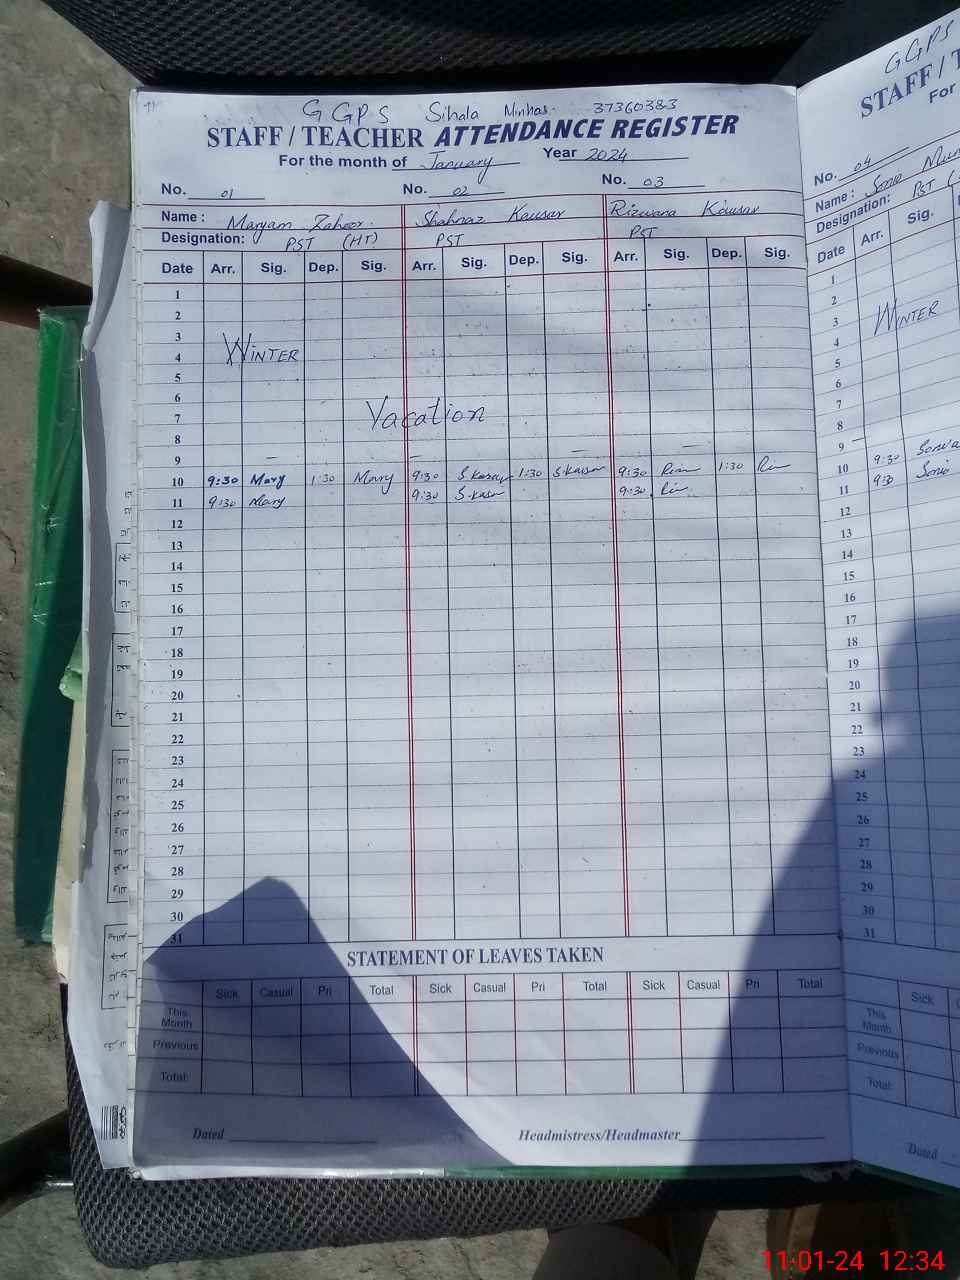 GGPS Sihala Minhas. 37360383
STAFF / TEACHER ATTENDANCE REGISTER
For the month of January Year 2024
No. 01 No. 02 No. 03
Name : Maryam Zaheer. Shahnaz Kausar Rizwana Kausar
Designation: PST (HT) PST PST
Date Arr. Sig. Dep. Sig. Arr. Sig. Dep. Sig. Arr. Sig. Dep. Sig.
1
2
3
4 WINTER
5
6
7 Vacation
8
9
10 9:30 Mary 1:30 Mary 9:30 S.Kausar 1:30 S.Kausar 9:30 1:30
11 9:30 Mary 9:30 9:30
12
13
14
15
16
17
18
19
20
21
22
23
24
25
26
27
28
29
30
31
STATEMENT OF LEAVES TAKEN
Sick Casual Pri Total Sick Casual Pri Total Sick Casual Pri Total
This Month
Previous
Total:
Dated Headmistress/Headmaster
GGPS
STAFF / T
For
No. 04
Name :
Designation: PST
Date Arr. Sig.
1
2
3 WINTER
4
5
6
7
8
9
10 9:30
11 9:30
12
13
14
15
16
17
18
19
20
21
22
23
24
25
26
27
28
29
30
31
Sick
This Month
Previous
Total:
Dated
11-01-24 12:34